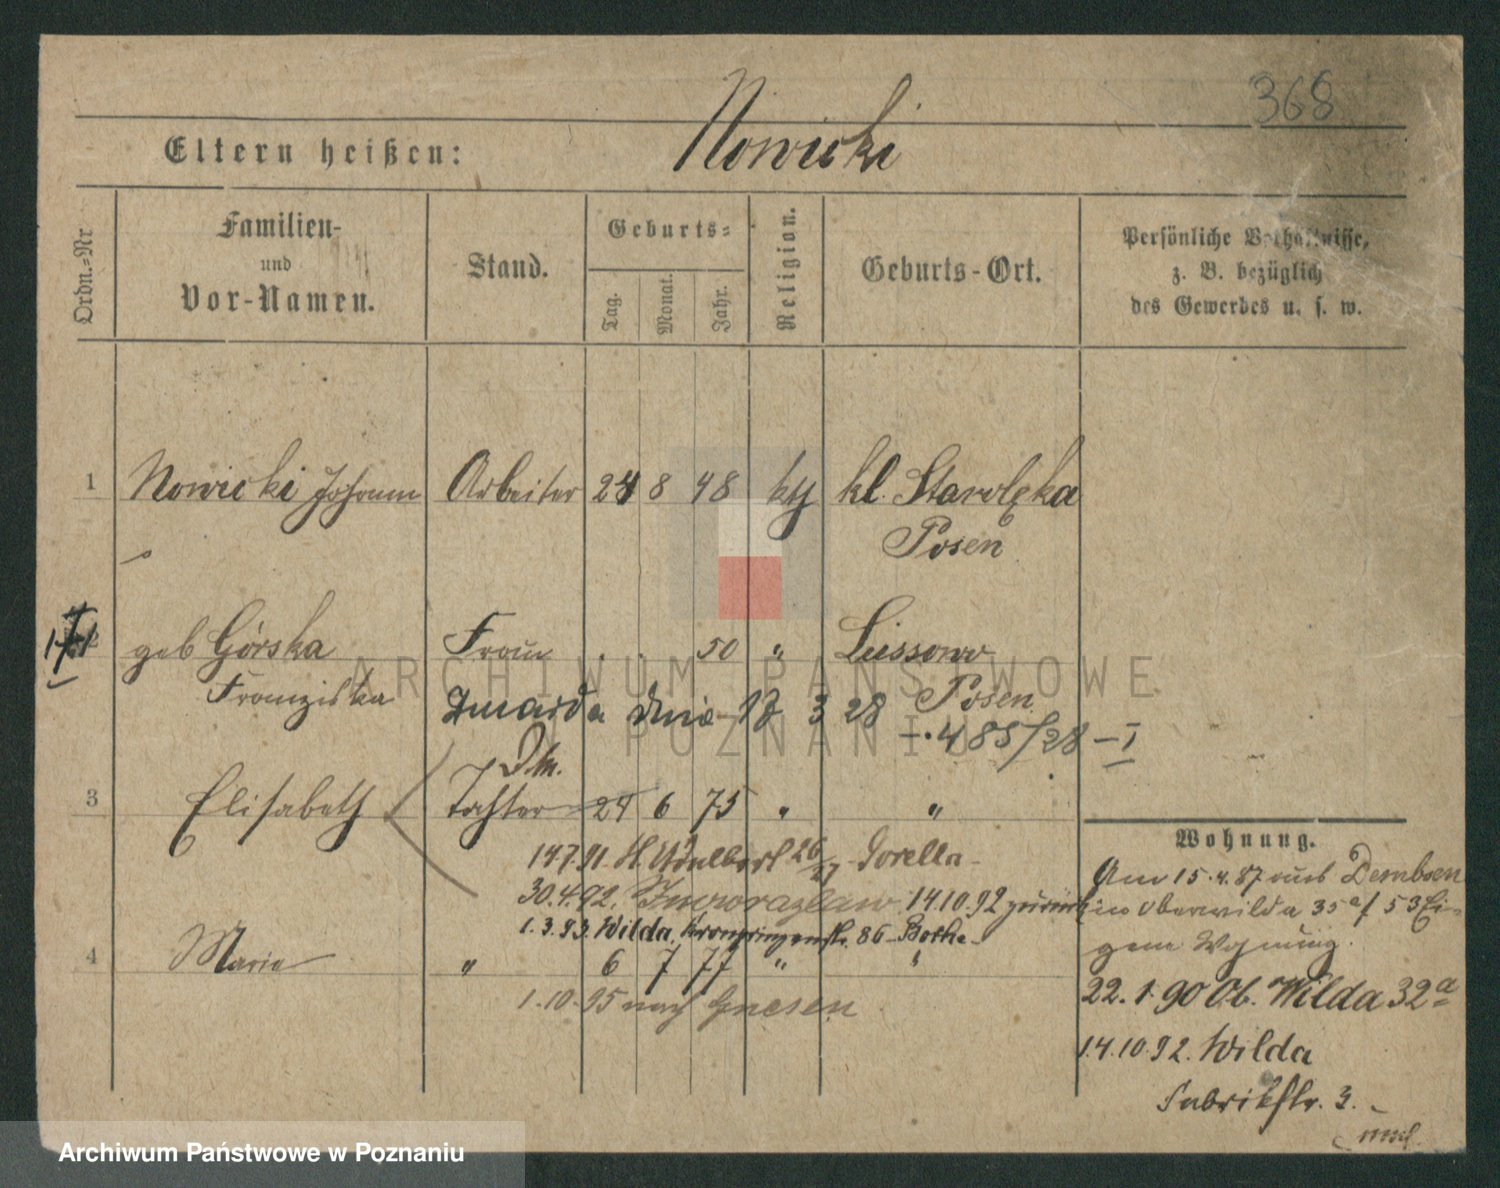 368
Eltern heißen: Nowicki
Ordn.-Nr
Familien-
und
Vor-Namen.
Stand.
Geburts-
Tag.
Monat.
Jahr.
Religion.
Geburts-Ort.
Persönliche Verhältnisse,
z. B. bezüglich
des Gewerbes u. s. w.
1 Nowicki Johann Arbeiter 24 8 48 kl. Starolęka
Posen
2 geb Górska Frau . . 50 " Lissowo
Franziska Posen
zmarła dnia 17 3 28 485/28 - I
3 Elisabeth Tochter 24 6 75 " "
14.7.91. 26/27 Gorella
30.4.92. Inowrazlaw. 14.10.92 zurück
1.3.93. Wilda, Kronprinzenstr. 86 Bothe
4 Marie " 6 7 77 " "
1.10.95 nach Gnesen
Wohnung.
Am 15.4.87 aus Dembsen
in Oberwilda 35a / 53 Ei-
gene Wohnung.
22.1.90 Ob. Wilda 32a
14.10.92. Wilda
Fabrikstr. 3.
ARCHIWUM PAŃSTWOWE
W POZNANIU
Archiwum Państwowe w Poznaniu